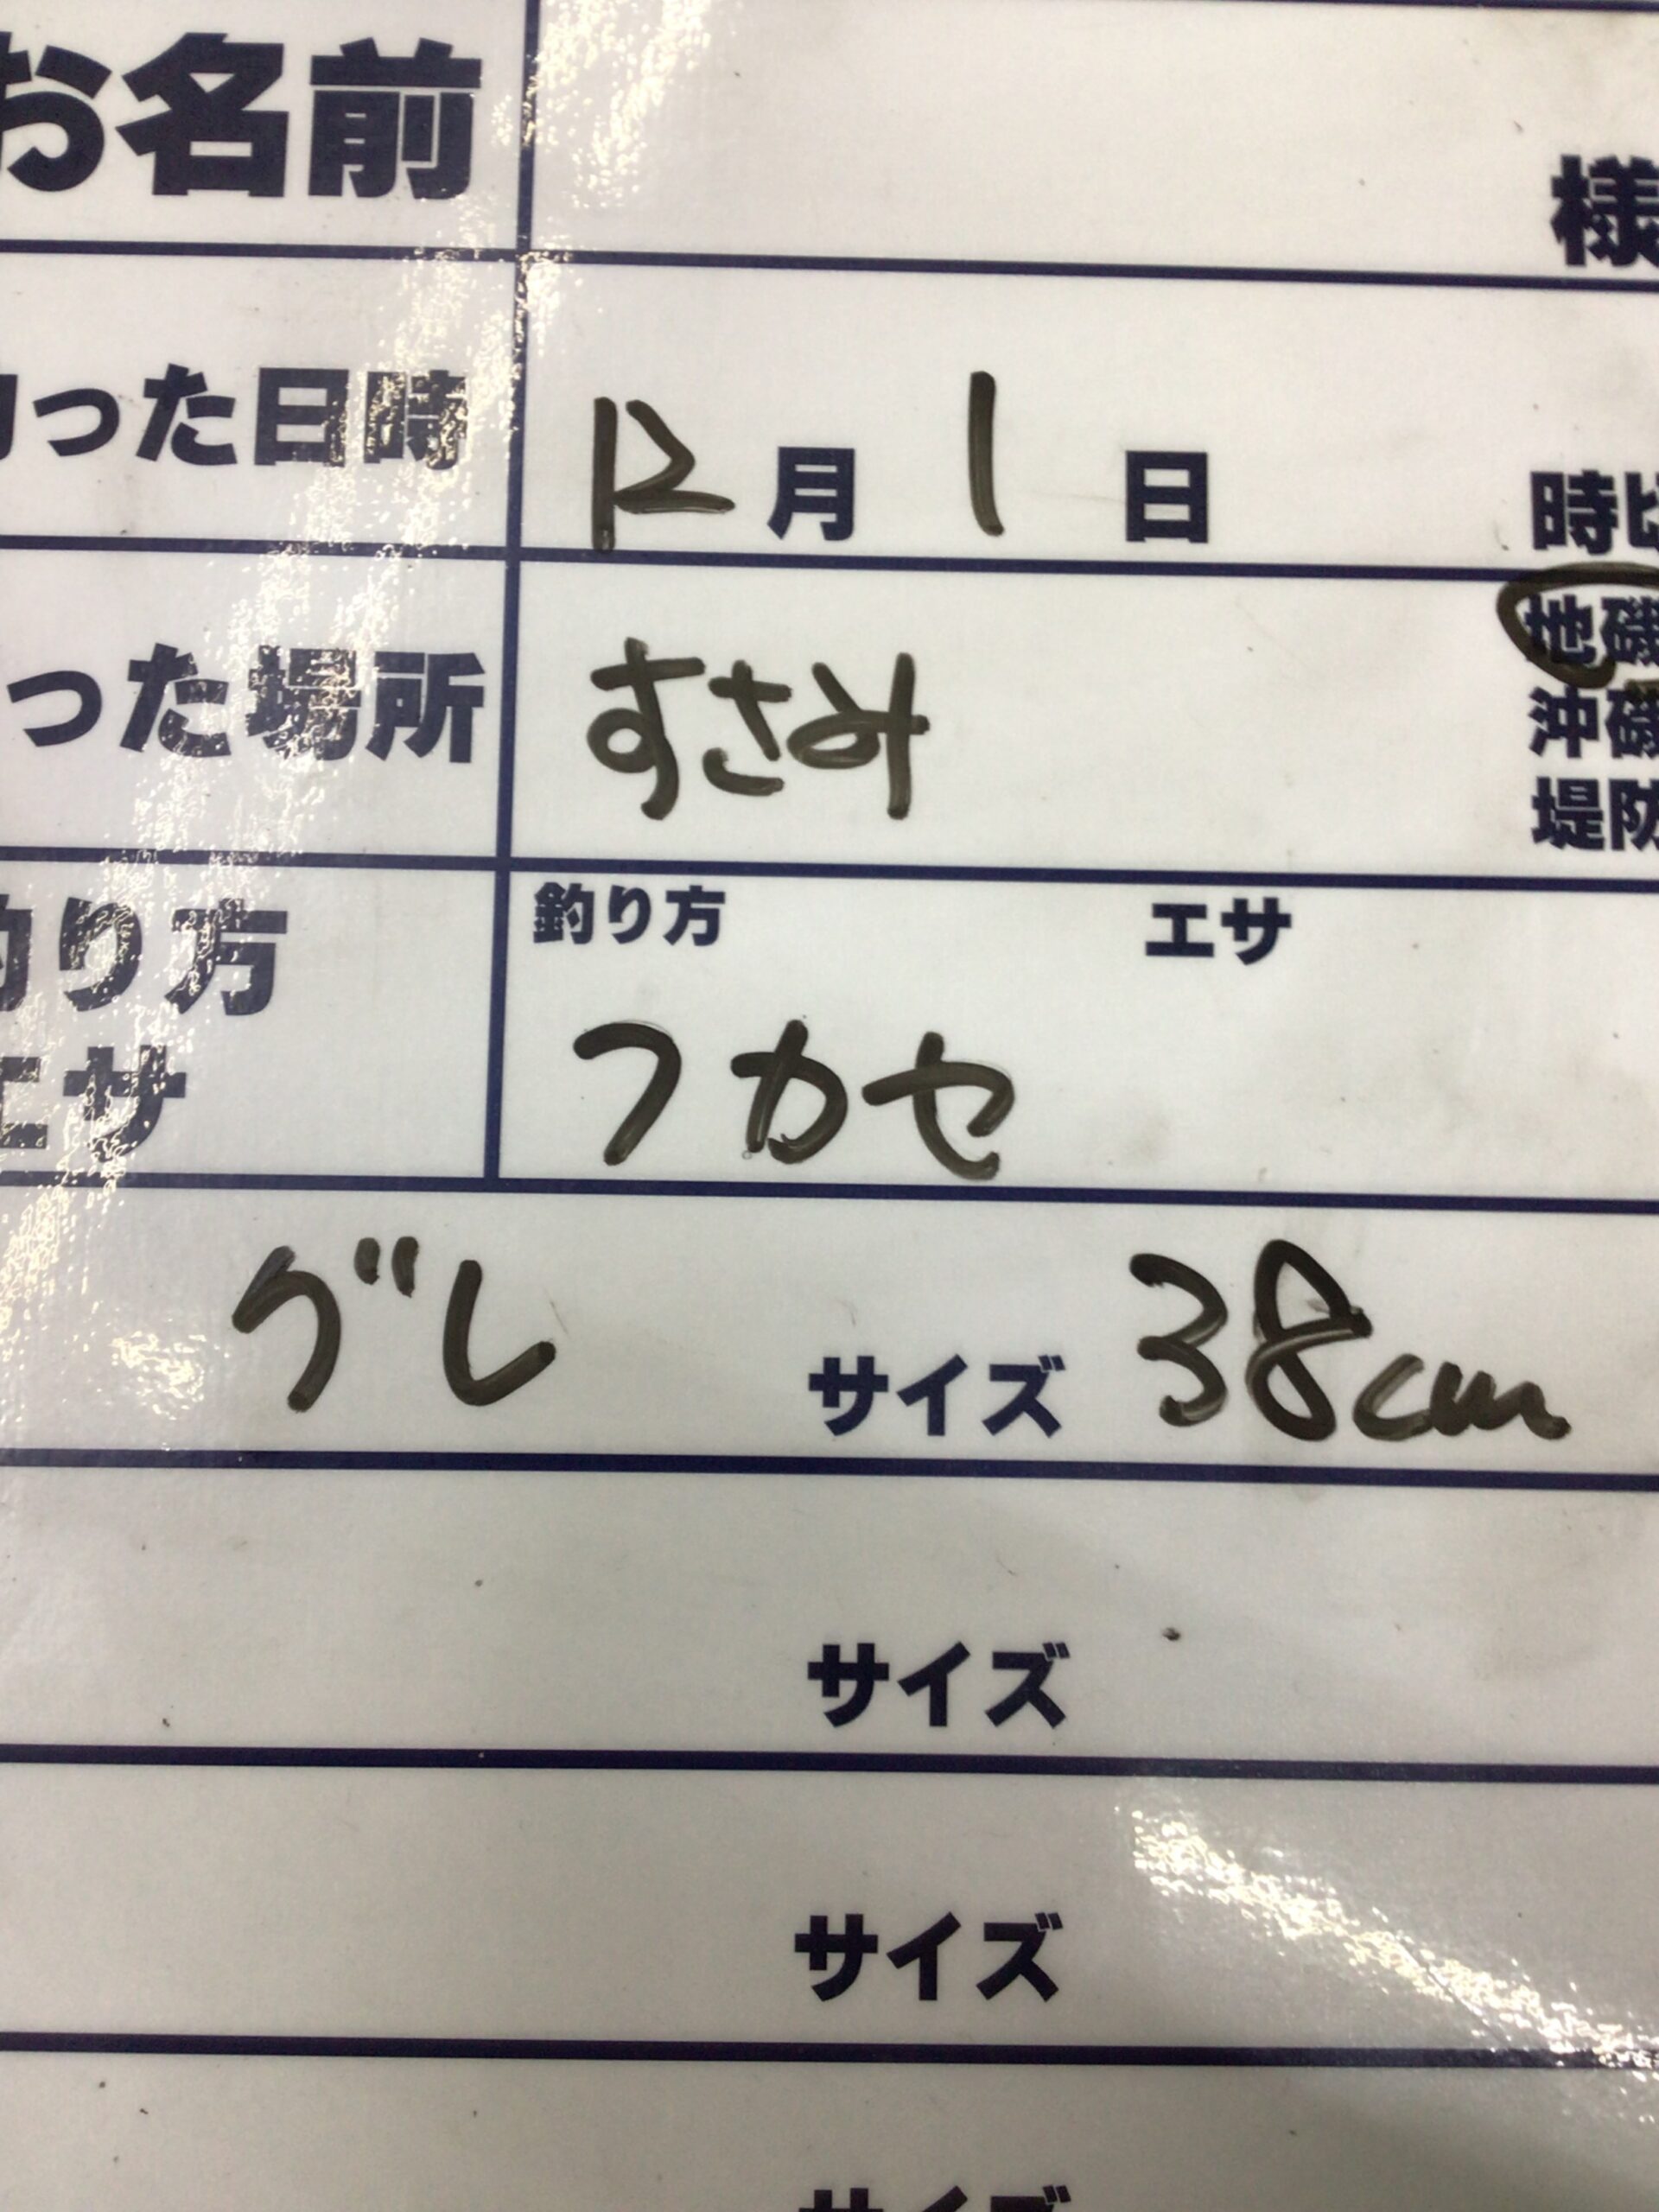 お名前 様
釣った日時 12月 1 日 時頃
地磯
釣った場所 すさみ 沖磯
堤防
釣り方 エサ
釣り方
エサ フカセ
グレ サイズ 38cm
サイズ
サイズ
サイズ